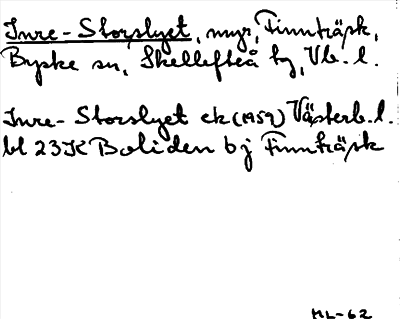 Inre-Storslyet, myr, Finnträsk,
Byske sn, Skellefteå tg, Vb. l.
Inre-Storslyet ek (1959) Västerb. l.
bl 23K Boliden 6j Finnträsk
ML-62